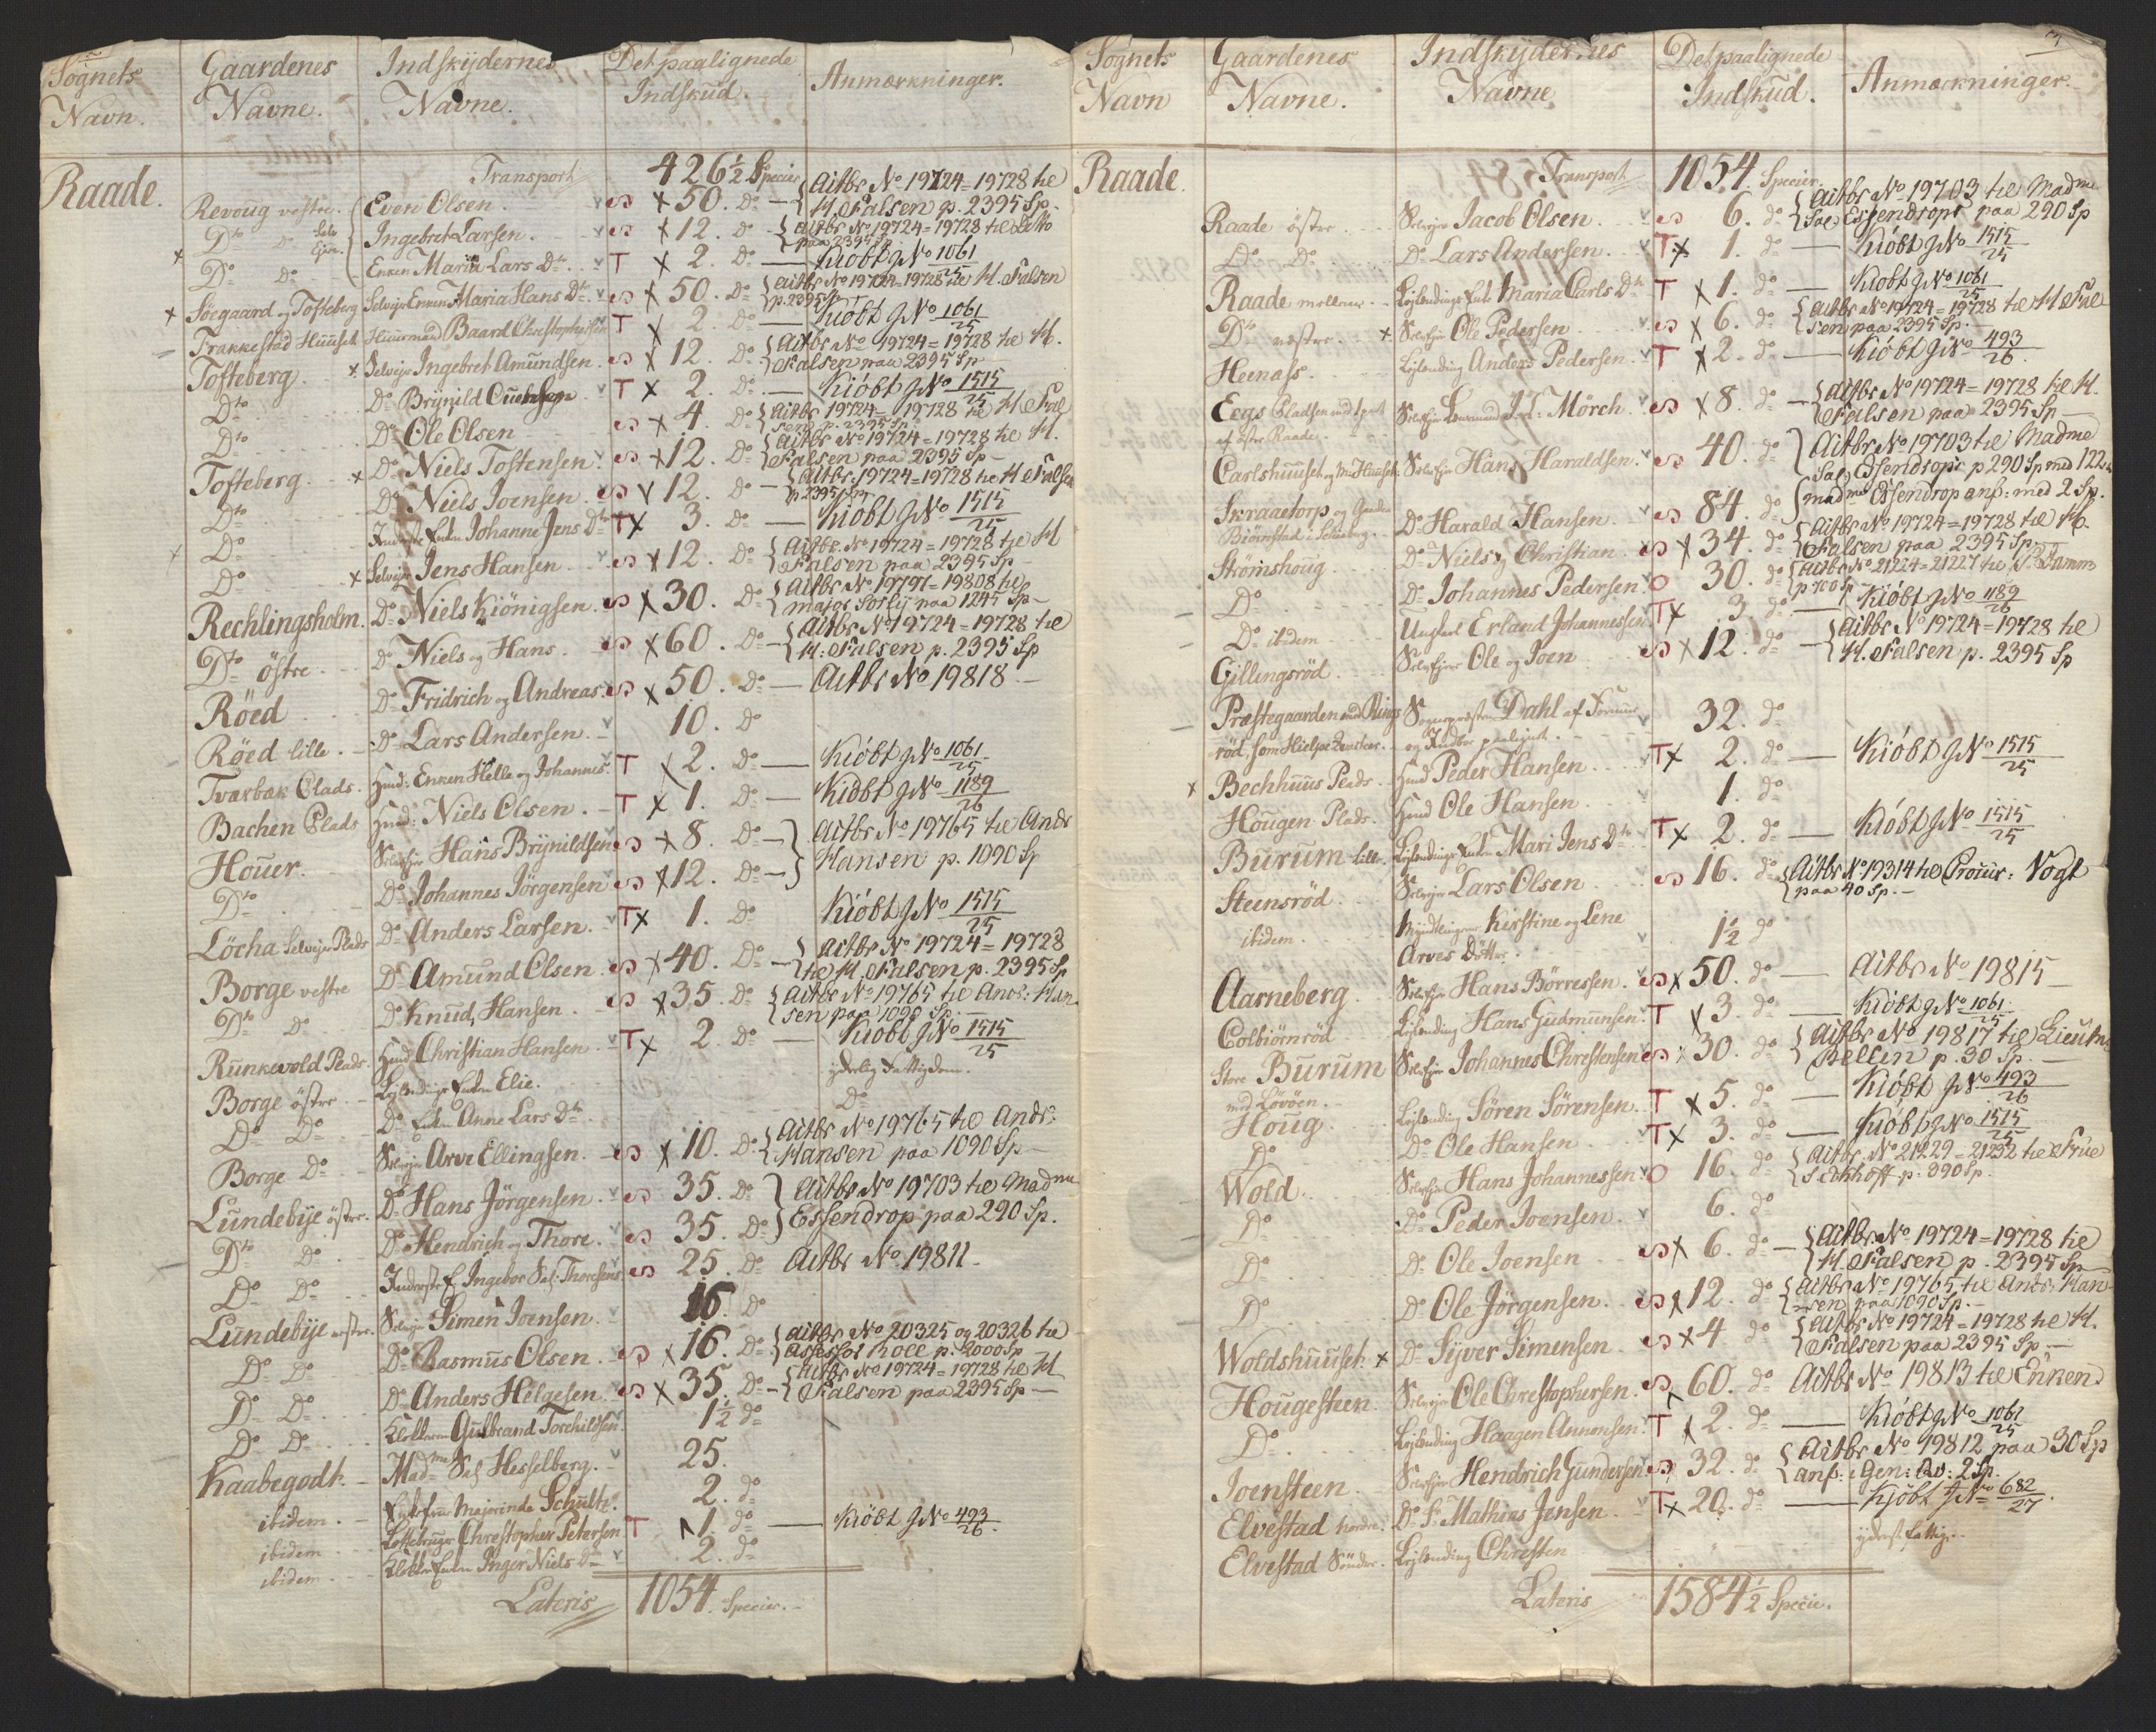 Sognets Navn.
Gaardenes Navne.
Indskydernes Navne.
Det paalignede Indskud.
Anmærkninger.
Raade.
Transport 426 1/2 Specier
Revoug vestre. Even Olsen. S x 50. Do { Actbr No 19724=19728 til H. Falsen p. 2395 Sp
Dto Do Ingebret Larsen. S x 12. Do { Actbr No 19724=19728 til Ditto paa 2395 Sp
x Do Do Enken Maria Lars Dtr T x 2. Do — Kiöbt J No 1061/25
x Söegaard og Tofteberg Selvejer Enken Maria Hans Dtr. S x 50. Do { Actbr No 19724=19728 til H. Falsen p. 2395 Sp
Frakkestad Huuset Huusmand Baard Christophersen T x 2. Do — Kiöbt J No 1061/25
Tofteberg x Selvejer Ingebret Amundsen. S x 12. Do { Actbr No 19724=19728 til H. Falsen paa 2395 Sp
Dto Do Brynild T x 2. Do — Kiöbt J No 1515/25
Dto Do Ole Olsen S x 4. Do { Actbr 19724=19728 til H Falsen p. 2395 Sp
Tofteberg. x Do Niels Toftensen. S x 12. Do { Actbr No 19724=19728 til H. Falsen paa 2395 Sp
Dto Do Niels Joensen. S x 12. Do { Actbr. 19724=19728 til H Falsen p 2395 Sp
Do Enken Johanne Jens Dtr T x 3. Do — Kiöbt J No 1515/25
Do x Selvejer Jens Hansen S x 12. Do { Actbr. No 19724=19728 til H Falsen paa 2395 Sp
Rechlingsholm. Do Niels Kiönigsen. S x 30. Do { Actbr No 19797=19808 til major Sorly paa 1245 Sp
Dto östre. Do Niels og Hans. S x 60. Do { Actbr No 19724=19728 til H. Falsen p. 2395 Sp
Röed Do Fridrich og Andreas. S x 50. Do — Actbr No 19818
Röed lille. Do Lars Andersen. 10. Do
Tværbæk Plads. Husmd: Enken Helle og Johannes. T x 2. Do — Kiöbt J No 1061/25
Bachen Plads Husmd: Niels Olsen. T x 1. Do — Kiöbt J No 1189/26
Houer. Selvejer Hans Brynildsen S x 8. Do } Actbr No 19765 til Andr
Dto Do Johannes Jörgensen S x 12. Do } Hansen p. 1090 Sp
Löcha Selvejer Plads Do Anders Larsen. T x 1. Do Kiöbt J No 1515/25
Borge vestre Do Amund Olsen. S x 40. Do { Actbr No 19724=19728 til H. Falsen p. 2395 Sp
Dto Do Do Knud Hansen. S x 35. Do { Actbr No 19765 til Andr: Hansen paa 1090 Sp.
Runkevold Plads. Husmd Christian Hansen. T x 2. Do — Kiöbt J No 1515/25
Borge östre. Lejlendings Enken Elie. yderlig Fattigdom.
Do Do Do Enken Anne Lars Dtr Do
Borge Do Selvejer Arve Ellingsen. S x 10. Do { Actbr No 19765 til Andr. Hansen paa 1090 Sp
Lundebye östre. Do Hans Jörgensen. S 35. Do } Actbr No 19703 til Madme
Dto Do Do Hendrich og Thore. S 35. Do } Essendrop paa 290 Sp.
Do Do Ingebor Sal. Thoresens S 25. Do Actbr No 19811
Lundebye vestre. Selvejer Simen Joensen. 16. Do
Do Do Do Rasmus Olsen. S x 16. Do { Actbr No 20325 og 20326 til Assessor Roll p. 2000 Sp
Do Do Do Anders Helgesen. S x 35. Do { Actbr No 19724=19728 til H Falsen paa 2395 Sp
Do Do Klokkeren Gulbrand Torchildsen. 1 1/2 do
Kaabegodt. Madme Sal Hesselberg. 25.
ibidem. Majorinde Schultz. 2. do
ibidem Christopher Petersen T x 1. do — Kiöbt J No 493/26
ibidem Klokker Enken Inger Niels Dtr 2. do
Lateris 1054. Specier.
Sognets Navn
Gaardenes Navne.
Indskydernes Navne
Det paalignede Indskud.
Anmærkninger.
Raade.
Transport 1054. Specier.
Raade östre. Selvejer Jacob Olsen. S 6. do { Actbr No 19703 til Madme Sal Essendrops paa 290 Sp
Do Do Do Lars Andersen. T x 1. do — Kiöbt J No 1515/25
Raade mellem Lejlendings Enke Maria Carls Dtr T x 1. do — Kiöbt J No 1061/25
Dto vestre. x Selvejer Ole Pedersen S x 6. do { Actbr No 19724=19728 til H Falsen paa 2395 Sp.
Heenass. Lejlending Anders Pedersen. T x 2. do — Kiöbt J No 493/26
Eegs Pladsen med 1 part af östre Raade. Selvejer Mörch. S x 8. do { Actbr No 19724=19728 til H. Falsen paa 2395 Sp
Carlshuuset Selvejer Hans Haraldsen. S 40. do } Actbr No 19703 til Madme Sal Essendrops p 290 Sp med 122
Skraatorp og Biörnstad Do Harald Hansen. S 84. do { madme Essendrop ans: med 2 Sp.
Strömshoug Do Niels og Christian. S x 34. do { Actbr No 19724=19728 til H. Falsen paa 2395 Sp
Do Do Johannes Pedersen. O 30. do { Actbr No 21224=21227 til P. Tamm p 700 Sp
Do ibidem Ungkarl Erland Johannessen T x 3 do Kiöbt J No 1189/26
Gillingsröd. Selvejer Ole og Joen S x 12. do { Actbr No 19724=19728 til H. Falsen p. 2395 Sp
Præstegaarden med Rings röd, som Hielpe Sognepræsten Dahl af Formue og Indtr paalignet. 32. do
x Bechhuus Plads. Husmd Peder Hansen. T x 2. do — Kiöbt J No 1515/25
Hougen Plads. Husmd Ole Hansen. 1. do
Burum lille. Lejlendings Enken Mari Jens Dtr T x 2. do — Kiöbt J No 1515/25
Steensröd Selvejer Lars Olsen S 16. do { Actbr No 19314 til Procur: Vogt paa 40 Sp.
ibidem. Myndlingerne Kirstine og Lene Arves Döttre. 1 1/2 do
Aarneberg. Selvejer Hans Börresen. S x 50. do — Actbr No 19815
Colbiörnröd Lejlending Hans Gudmunsen. T x 3. do — Kiöbt J No 1061/25
store Burum med Lövöen. Selvejer Johannes Chrestensen S x 30. do { Actbr No 19817 til Lieutn Bellin p. 30 Sp.
Houg Lejlending Sören Sörensen. T x 5. do — Kiöbt J No 493/26
Do Do Ole Hansen T x 3. do — Kiöbt J No 1515/25
Wold. Selvejer Hans Johannessen O 16. do { Actbr. No 21229=21232 til Frue Sechhoff p. 890 Sp.
Do Do Peder Joensen. 6. do
Do Do Ole Joensen S x 6. do { Actbr No 19724=19728 til H. Falsen p. 2395 Sp
Do Do Ole Jörgensen. S x 12. do { Actbr No 19765 til Andr: Hansen paa 1090 Sp.
Woldshuuset. x Do Syver Simensen S x 4 do { Actbr No 19724=19728 til H. Falsen paa 2395 Sp.
Hougesteen. Selvejer Ole Chrestophersen. S x 60. do Actbr No 19813 til Enken
Do Lejlending Haagen Annonsen. T x 2. do — Kiöbt J No 1061/25
Joensteen Selvejer Hendrich Gundersen S 32. do { Actbr No 19812 paa 30 Sp ans: Gen: Qv: 2 Sp.
Elvestad nordre. Do Mathias Jensen T x 20. do — Kjöbt J No 682/27.
Elvestad Söndre. Lejlending Chresten yderst fattig.
Lateris 1584 1/2 Specie.